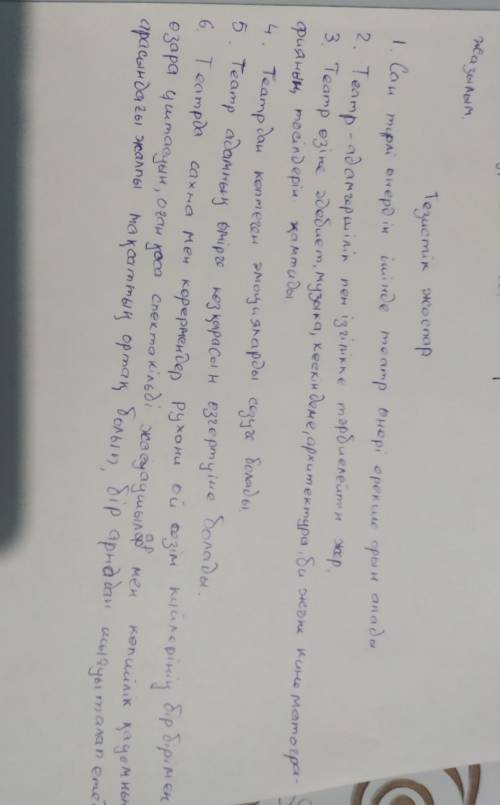 жазылым.
Тезистік жоспар
1. Сан түрлі өнердің ішінде театр өнері ерекше орын алады
2. Театр - адамгершілік пен ізгілікке тәрбиелейтін жер.
3. Театр өзіне әдебиет, музыка, кескіндеме, архитектура, би және кинематогра-
фияның тәсілдерін қамтиды
4. Театрдан көптеген эмоцияларды сезуге болады.
5. Театр адамның өмірге көзқарасын өзгертуіне болады.
6. Театрда сахна мен көрермендер рухани ой сезім күйлерінің бір бірімен
өзара ұштасуын, оған қоса спектакльді жасаушылар мен көпшілік қауымның
арасындағы жалпы мақсаттың ортақ болып, бір арнадан шығуы талап етеді